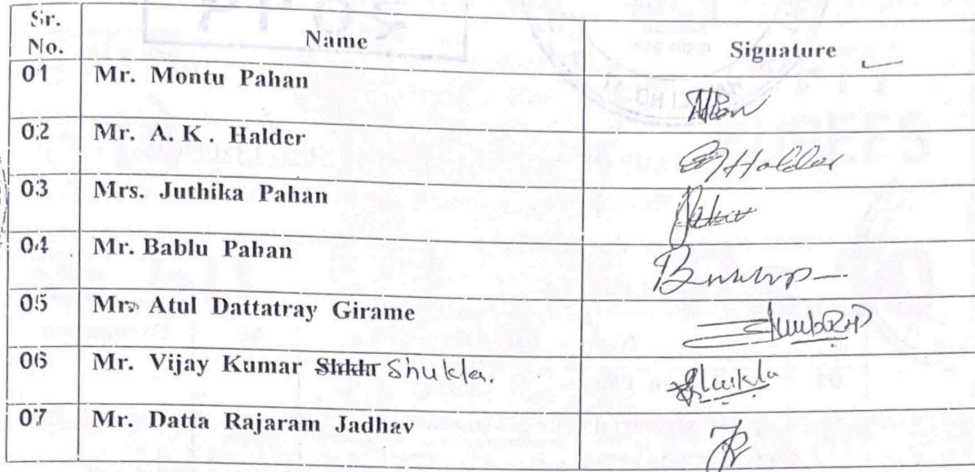 Sr. No. Name Signature
01 Mr. Montu Pahan
02 Mr. A. K. Halder Halder
03 Mrs. Juthika Pahan
04 Mr. Bablu Pahan
05 Mr. Atul Dattatray Girame
06 Mr. Vijay Kumar Shukla. Shukla
07 Mr. Datta Rajaram Jadhav